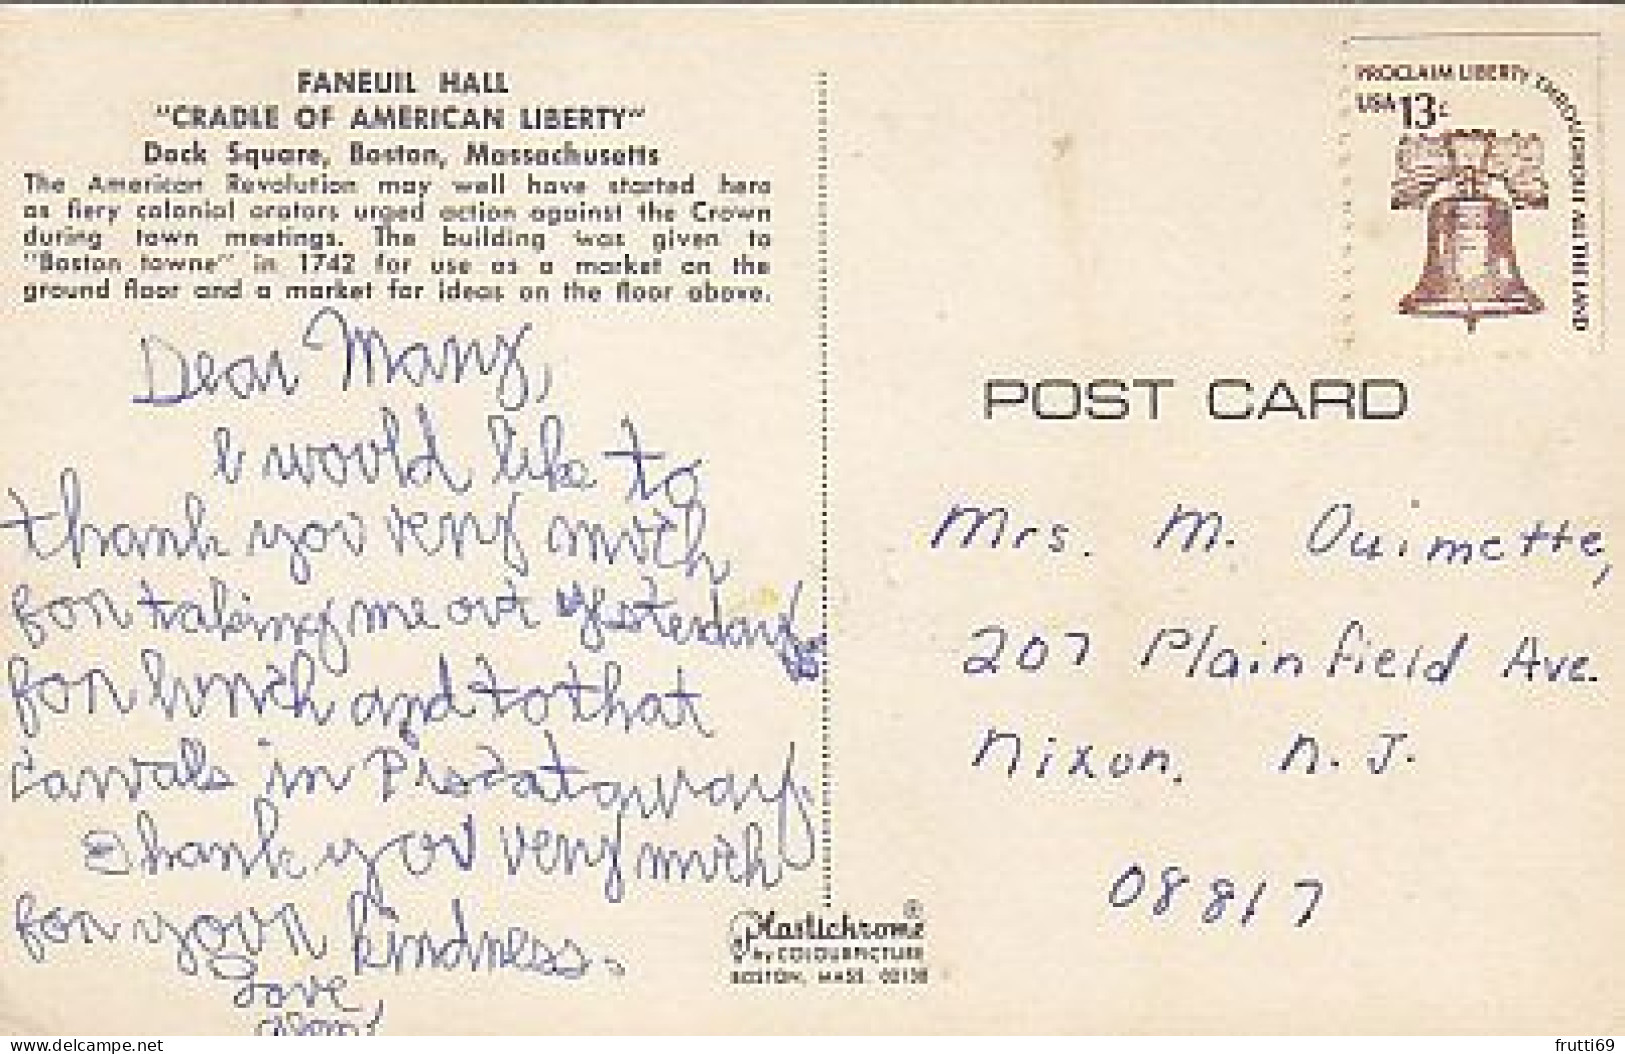 FANEUIL HALL
"CRADLE OF AMERICAN LIBERTY"
Dock Square, Boston, Massachusetts
The American Revolution may well have started here
as fiery colonial orators urged action against the Crown
during town meetings. The building was given to
"Boston towne" in 1742 for use as a market on the
ground floor and a market for ideas on the floor above.
Dear Mary,
I would like to
thank you very much
for taking me out yesterday
for lunch and to that
in Piscataway.
Thank you very much
for your kindness.
Love,
PROCLAIM LIBERTY THROUGHOUT ALL THE LAND
USA 13c
POST CARD
Mrs. M. Ouimette,
207 Plainfield Ave.
Nixon, N.J.
08817
Plastichrome ®
by COLOURPICTURE
BOSTON, MASS. 02130
www.delcampe.net
frutti69